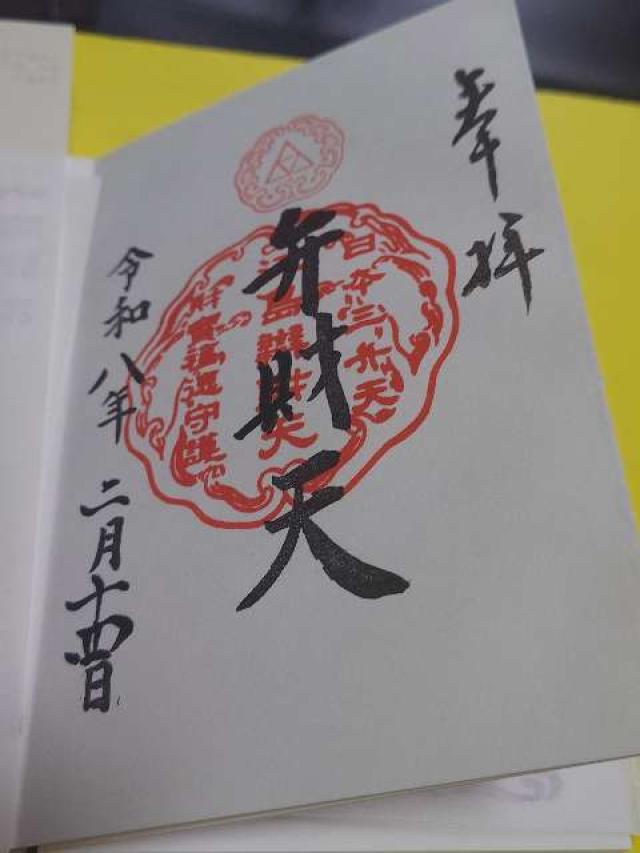 奉拝
日本三弁天
弁財天
財宝福運守護
令和八年 二月十四日